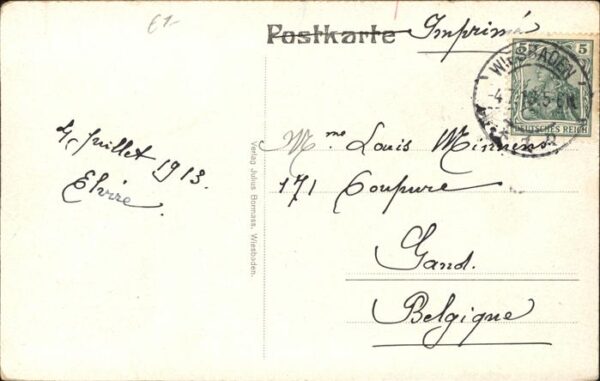 €1-
Postkarte Imprimé
5 5
WIESBADEN
DEUTSCHES REICH
4 Juillet 1913.
Elvire.
Verlag Julius Bormass. Wiesbaden.
Mme Louis Minnens
171 Coupure
Gand.
Belgique